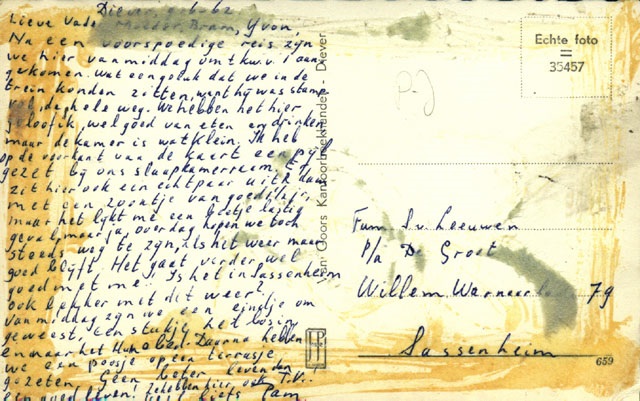 Diever, 9-6-62
Lieve Vader, Moeder, Bram, Yvon,
Na een voorspoedige reis zijn
we hier vanmiddag om kw.v. 1 aan-
gekomen. Wat een geluk dat we in de
trein konden zitten, want hij was stamp
vol de hele weg. We hebben het hier
geloof ik, wel goed van eten en drinken
maar de kamer is wat klein. Ik heb
op de voorkant van de kaart een pijl
gezet bij ons slaapkamerraam. Er
zit hier ook een echtpaar uit
met een zoontje van
maar het lijkt me een beetje lastig
geval, maar ja, overdag hopen we toch
steeds weg te zijn, als het weer maar
goed blijft. Het gaat verder wel
goed met me. Is het in Sassenheim
ook lekker met dit weer?
Vanmiddag zijn we een eindje om
geweest, een stukje het bos in
en naar het Hunebed. Daarna hebben
we een poosje op een terrasje
gezeten. Geen beter leven dan
een goed leven! Ze hebben hier ook T.V.!
veel liefs Pam
Van Goors Kantoorboekhandel - Diever
Echte foto
35457
P-J
Fam. S. v. Leeuwen
P/a De Groot
Willem Warnaar 79
Sassenheim
659